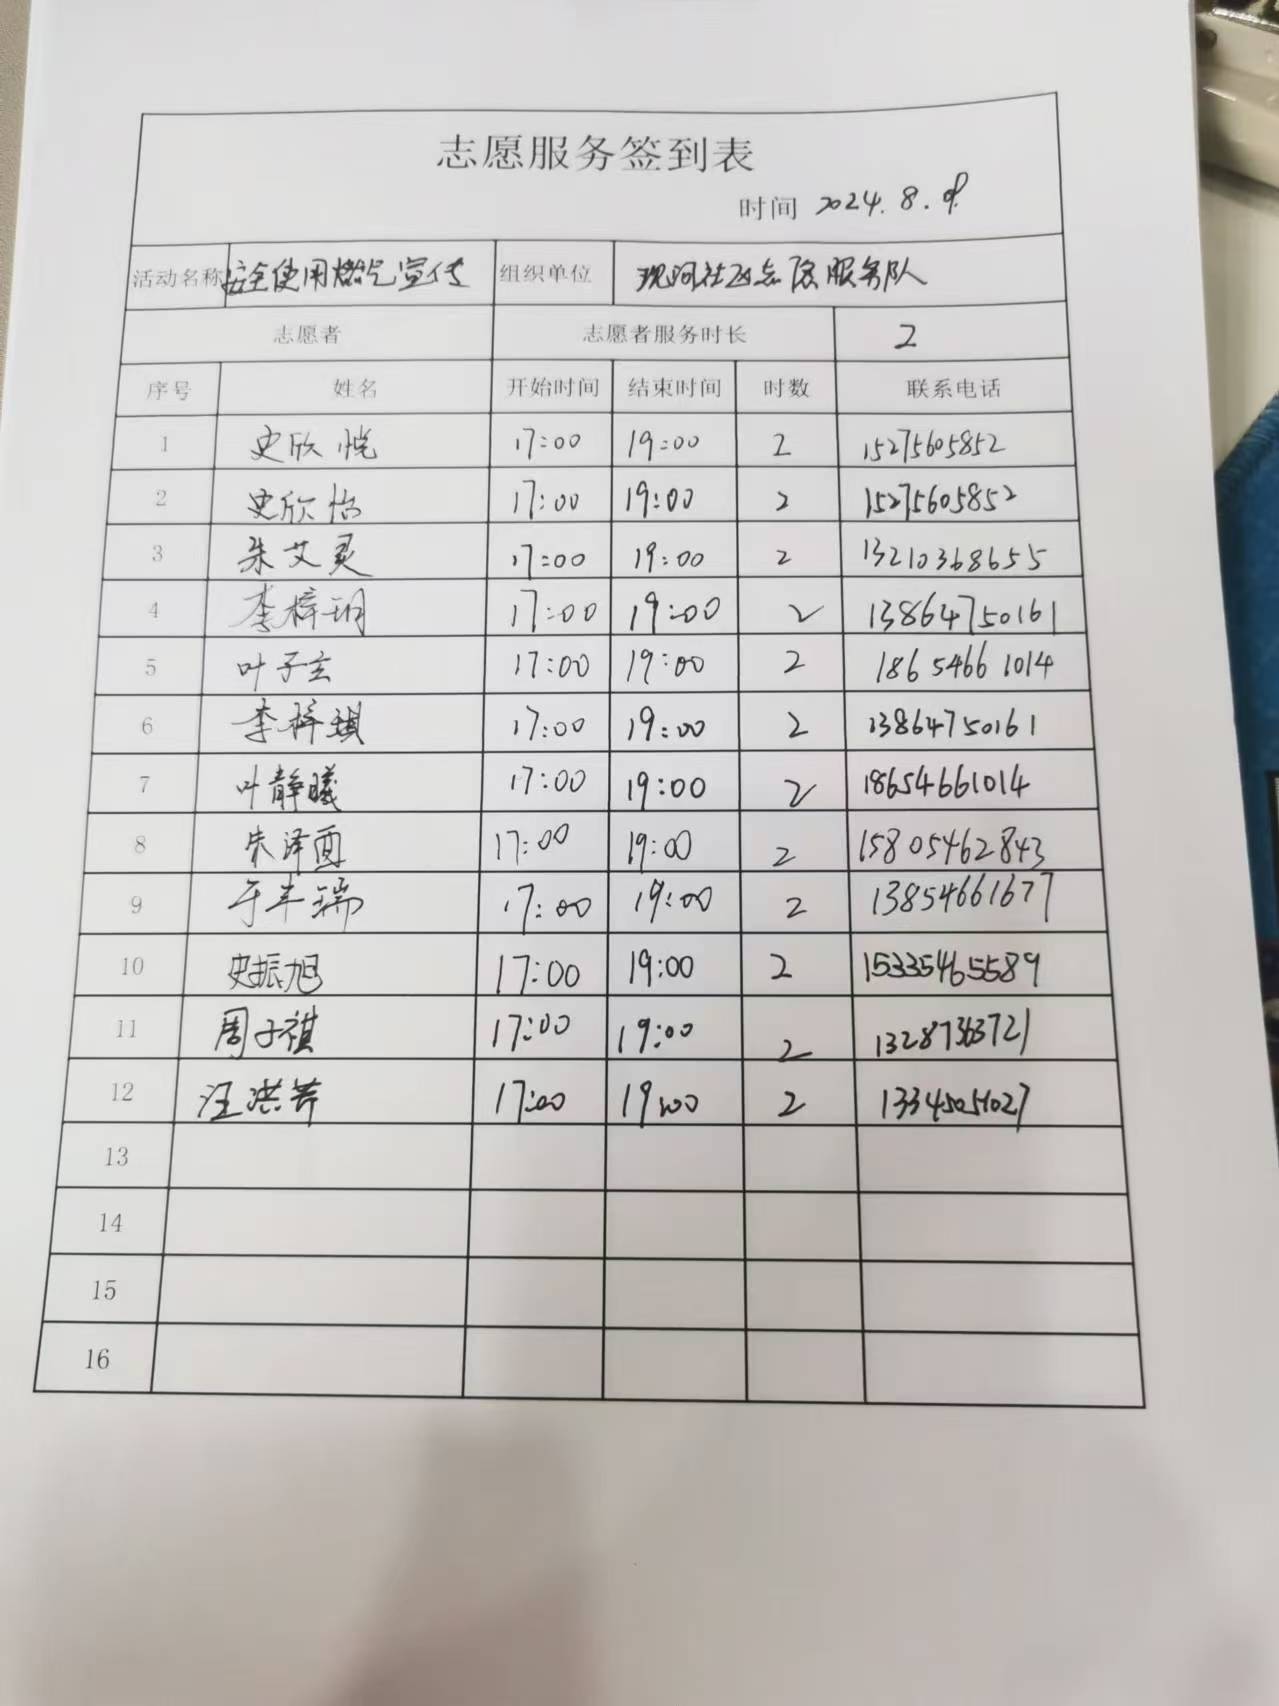 志愿服务签到表
时间 2024.8.9
活动名称 安全使用燃气宣传 组织单位 现河社区志愿服务队
志愿者 志愿者服务时长 2
序号 姓名 开始时间 结束时间 时数 联系电话
1 史欣悦 17:00 19:00 2 15275605852
2 史欣怡 17:00 19:00 2 15275605852
3 朱艾灵 17:00 19:00 2 13210368655
4 李梓玥 17:00 19:00 2 13864750161
5 叶子玄 17:00 19:00 2 18654661014
6 李梓琪 17:00 19:00 2 13864750161
7 叶静曦 17:00 19:00 2 18654661014
8 朱泽 17:00 19:00 2 15805462843
9 于丰瑞 17:00 19:00 2 13854661677
10 史振旭 17:00 19:00 2 15335465589
11 周子祺 17:00 19:00 2 13287363721
12 汪洪 17:00 19:00 2 13345051027
13
14
15
16